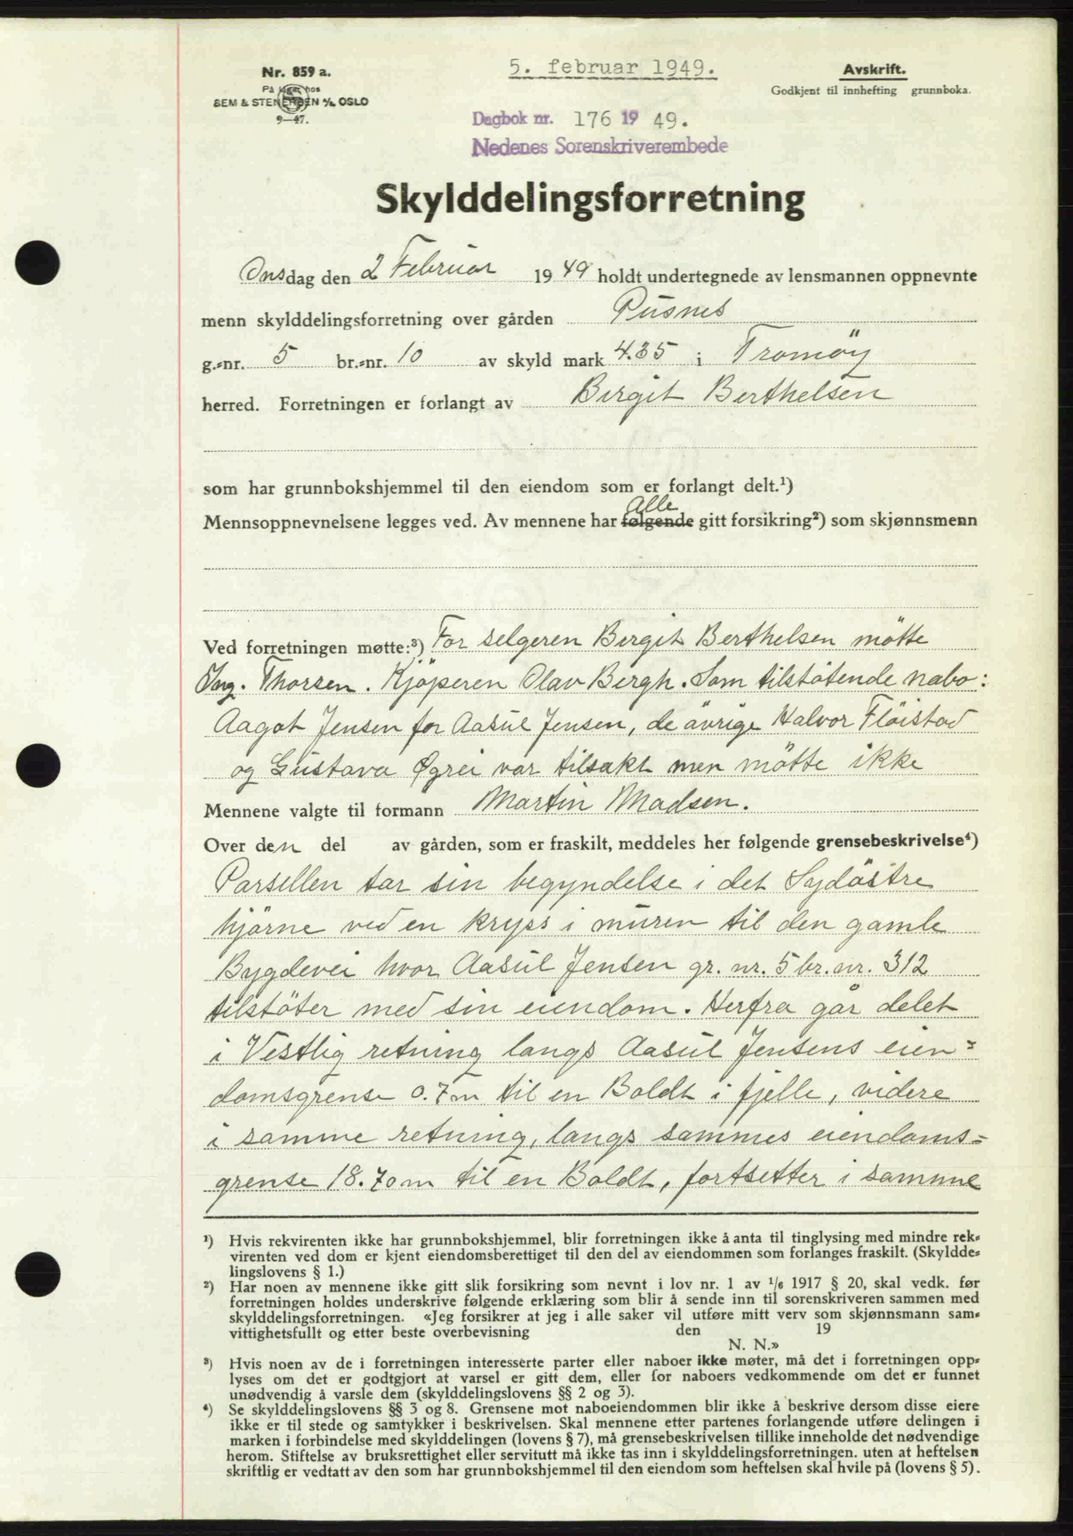 Nr. 859 a.
På lager hos
SEM & STENERSEN A/S OSLO
9—47.
5. februar 1949.
Avskrift.
Godkjent til innhefting grunnboka.
Dagbok nr. 176 19 49.
Nedenes Sorenskriverembede
Skylddelingsforretning
Onsdag den 2 Februar 19 49 holdt undertegnede av lensmannen oppnevnte
menn skylddelingsforretning over gården Pusnes
g.-nr. 5 br.-nr. 10 av skyld mark 4.35 i Tromöy
herred. Forretningen er forlangt av Birgit Berthelsen
som har grunnbokshjemmel til den eiendom som er forlangt delt.¹)
Alle
Mennsoppnevnelsene legges ved. Av mennene har følgende gitt forsikring²) som skjønnsmenn
Ved forretningen møtte:³) For selgeren Bergit Berthelsen mötte
Ing. Thorsen. Kjöperen Olav Bergh. Som tilstötende nabo:
Aagot Jensen for Aasul Jensen, de övrige Halvor Flöistad
og Gustava Øgrei var tilsakt men mötte ikke
Mennene valgte til formann Martin Madsen.
Over den del av gården, som er fraskilt, meddeles her følgende grensebeskrivelse⁴)
Parsellen tar sin begyndelse i det Sydöstre
hjörne ved en kryss i muren til den gamle
Bygdevei hvor Aasul Jensen gr. nr. 5 br. nr. 312
tilstöter med sin eiendom. Herfra går delet
i Vestlig retning langs Aasul Jensens eien=
domsgrense 0.7m til en Boldt i fjelle, videre
i samme retning, langs sammes eiendoms=
grense 18.70m til en Boldt, fortsetter i samme
¹) Hvis rekvirenten ikke har grunnbokshjemmel, blir forretningen ikke å anta til tinglysing med mindre rek-
virenten ved dom er kjent eiendomsberettiget til den del av eiendommen som forlanges fraskilt. (Skyldde-
lingslovens § 1.)
²) Har noen av mennene ikke gitt slik forsikring som nevnt i lov nr. 1 av 1/6 1917 § 20, skal vedk. før
forretningen holdes underskrive følgende erklæring som blir å sende inn til sorenskriveren sammen med
skylddelingsforretningen. «Jeg forsikrer at jeg i alle saker vil utføre mitt verv som skjønnsmann sam-
vittighetsfullt og etter beste overbevisning den 19
N. N.»
³) Hvis noen av de i forretningen interesserte parter eller naboer ikke møter, må det i forretningen opp-
lyses om det er godtgjort at varsel er gitt dem, eller for naboers vedkommende om det er funnet
unødvendig å varsle dem (skylddelingslovens §§ 2 og 3).
⁴) Se skylddelingslovens §§ 3 og 8. Grensene mot naboeiendommen blir ikke å beskrive dersom disse eiere
ikke er til stede og samtykker i beskrivelsen. Skal mennene etter partenes forlangende utføre delingen i
marken i forbindelse med skylddelingen (lovens § 7), må grensebeskrivelsen tillike inneholde det nødvendige
herom. Stiftelse av bruksrettighet eller servitutt må ikke tas inn i skylddelingsforretningen. uten at heftelsen
skriftlig er vedtatt av den som har grunnbokshjemmel til den eiendom som heftelsen skal hvile på (lovens § 5).